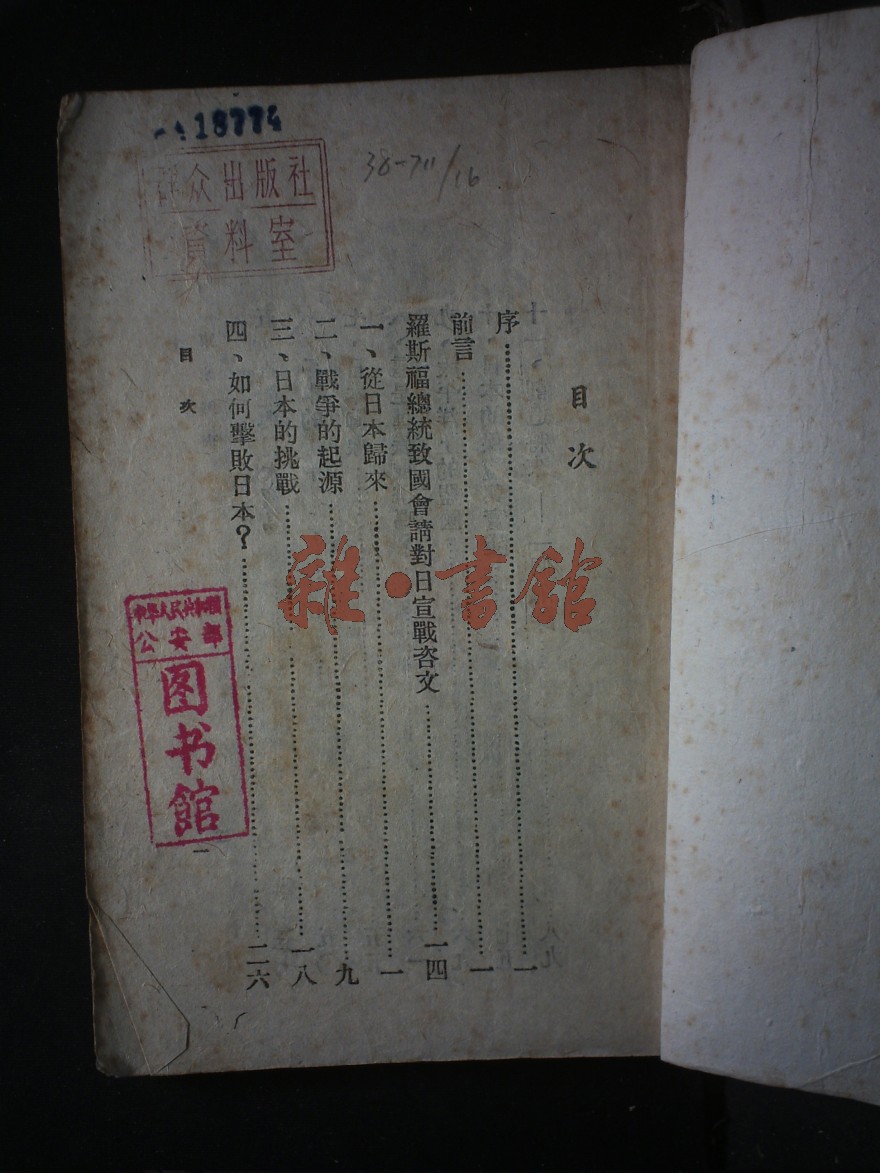 18774
38-711/16
众出版社
資料室
目次
序 一
前言 一
羅斯福總統致國會請對日宣戰咨文 一四
一、從日本歸來 一
二、戰爭的起源 九
三、日本的挑戰 一八
四、如何擊敗日本？ 二六
目次
一
中華人民共和國
公安部
图书館
雜·書館